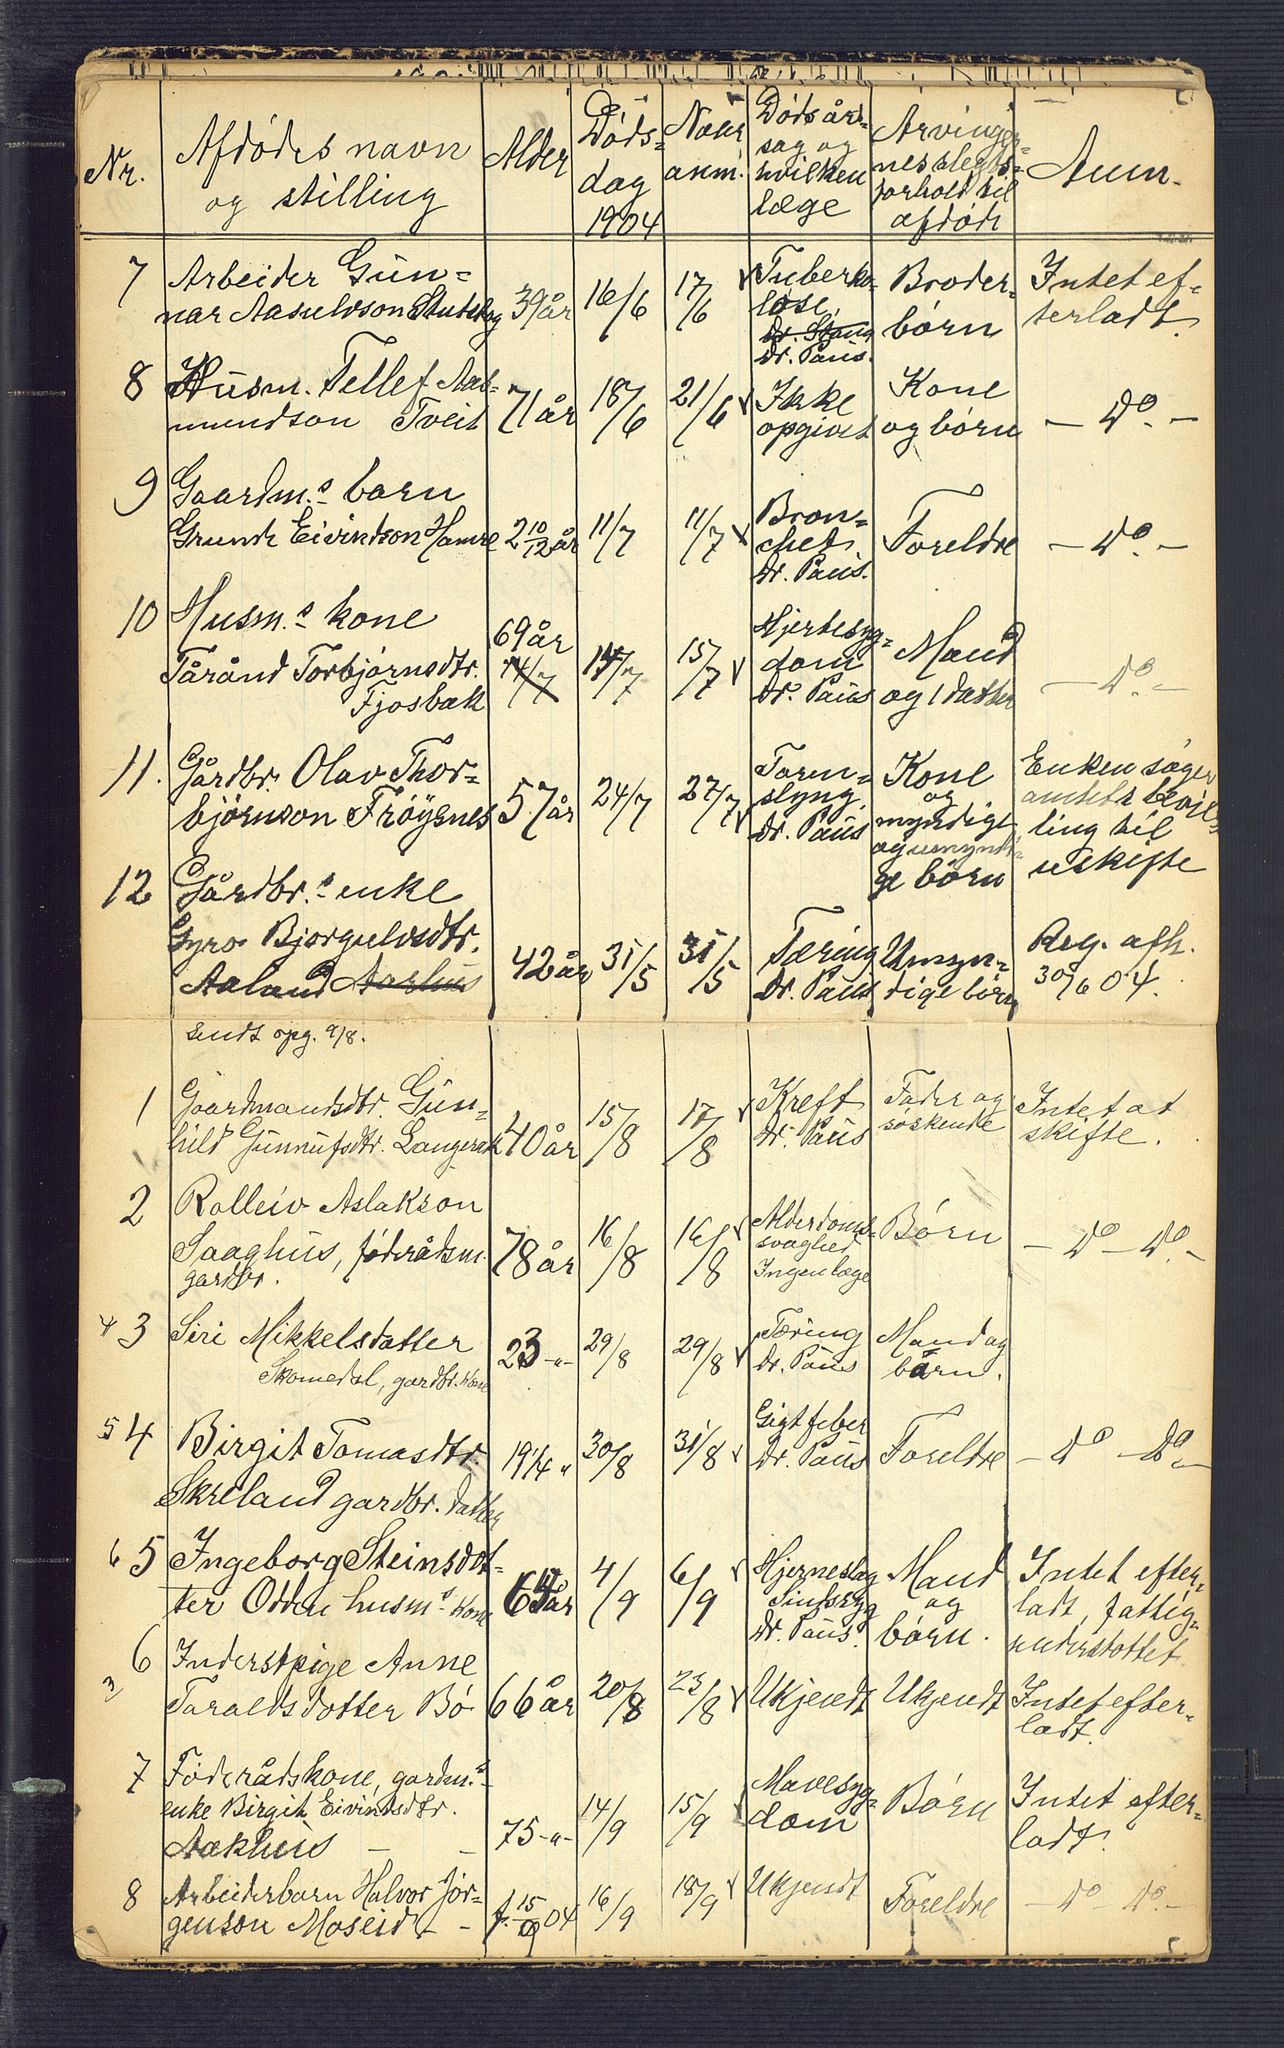 Nr. Afdødes navn og stilling Alder Døds-dag 1904 Naar anm. Dødsårsag og hvilken læge Arvingernes slegtsforhold til afdøde Anm.
7 Arbeider Gün-
nar Aasulvson 39 år 16/6 17/6 Tuberko-
løse, dr. Stang dr. Paüs. Broder-
børn Intet ef-
terladt.
8 Hüsm. Tellef Aas-
mundson Tveit 71 år 18/6 21/6 Ikke
opgivet Kone
og børn - Do. -
9 Gaardm.s barn
Grunde Eivindson Hamre 2 10/12 år 11/7 11/7 Bron-
chet
dr. Paüs. Foreldre - Do. -
10 Husm.s kone
Tårånd Torbjørnsdtr.
Fjosbæk 69 år 14/7 14/7 15/7 Hjertesyg-
dom
Dr. Paüs Mand
og 1 datter - Do. -
11. Gårdbr. Olav Thor-
bjørnson Frøysnes 57 år 24/7 27/7 Tarm-
slyng.
Dr. Paüs Kone
og
myndige
og umyndi-
ge børn Enken søger
amtets bevil-
ling til
uskifte
12 Gårdbr.s enke
Gyro Bjorgulvsdtr.
Aaland Aarhus 42 år 31/5 31/5 Tæring
Dr. Paüs Umyn-
dige børn Reg. afh.
30/6 04.
Sendt opg. 9/8.
1 Gaardmandsdtr. Gün-
hild Günnufsdtr. Langerak 40 år 15/8 17/8 Kreft
Dr. Paüs Fader og
søskende Intet at
skifte.
2 Rolleiv Aslakson
Saaghüs, føderådsm.
gardbr. 78 år 16/8 16/8 Alderdoms-
svaghed
Ingen læge Børn - Do - Do. -
4 3 Siri Mikkelsdatter
Skomedal, gardbr. kone 23 -"- 29/8 29/8 Tæring
dr. Paüs Mand og
børn.
5 4 Birgit Tomasdtr.
Skreland gardbr. datter 19 1/4 " 30/8 31/8 Gigtfeber
Dr. Paüs Foreldre - Do - Do -
6 5 Ingeborg Steinsdot-
ter Odden husm.s kone år 4/9 6/9 Hjerneslag
Sindssyg
Dr. Paüs. Mand
og
børn. Intet efter-
ladt, fattig-
understottet.
6 Inderstpige Anne
3 Taraldsdotter Bø 66 år 20/8 23/8 Ukjendt Ukjendt Intet efter-
ladt.
7 Føderådskone, gardm.s
enke Birgit Eivindsdtr.
Aakhüs - - 75 -"- 14/9 15/9 Mavesyg-
dom Børn Intet efter-
ladt.
8 Arbeiderbarn Halvor Jør-
genson Moseid - - f. 15/9 04 16/9 18/9 Ukjendt Foreldre - Do - Do. -